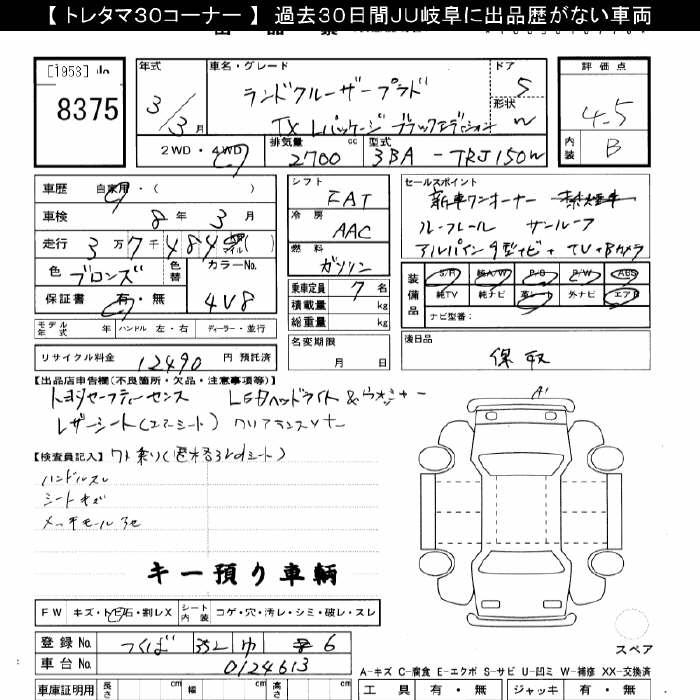 【 トレタマ30コーナー 】 過去30日間JU岐阜に出品歴がない車両
[1953]
8375
年式
3/3月
車名・グレード
ランドクルーザープラド
TX Lパッケージ ブラックエディション
ドア
5
形状
W
評価点
4.5
内装
B
2WD ・ 4WD
排気量
2700 cc
型式
3BA - TRJ150W
車歴
自家用・( )
車検
8年 3月
走行
3万 7千 484
色
ブロンズ
色替
カラーNo.
4V8
保証書
有・無
シフト
FAT
冷房
AAC
燃料
ガソリン
乗車定員
7名
積載量
kg
総重量
kg
セールスポイント
新車ワンオーナー 禁煙車
ルーフレール サンルーフ
アルパイン9型ナビ + TV + Bカメラ
装備品
S/R
純A/W
P/S
P/W
ABS
純TV
純ナビ
革シート
外ナビ
エアB
ナビ型番:
モデル年式
年
ハンドル
左・右
ディーラー・並行
リサイクル料金
12490
円 預託済
名変期限
月 日
後日品
保 取
【出品店申告欄(不良箇所・欠品・注意事項等)】
トヨタセーフティーセンス LEDヘッドライト & ウォッシャー
レザーシート(エアーシート) クリアランスソナー
【検査員記入】
7人乗り(電格3rdシート)
ハンドルスレ
シートキズ
メッキモール
A1
キー預り車輌
FW
キズ・トビ石・割レX
シート内装
コゲ・穴・汚レ・シミ・破レ・スレ
登録 No.
つくば
ゆ
6
車台 No.
0124613
スペア
A-キズ C-腐食 E-エクボ S-サビ U-凹ミ W-補修 XX-交換済
車庫証明用
長さ
cm
幅
cm
高さ
cm
工具
有・無
ジャッキ
有・無